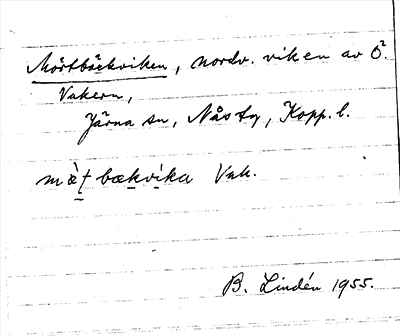 Mörtbäckviken, nordv. viken av Ö.
Vakern,
Järna sn, Nås tg, Kopp. l.
mœ̀t bækvika Vak.
B. Lindén 1955.